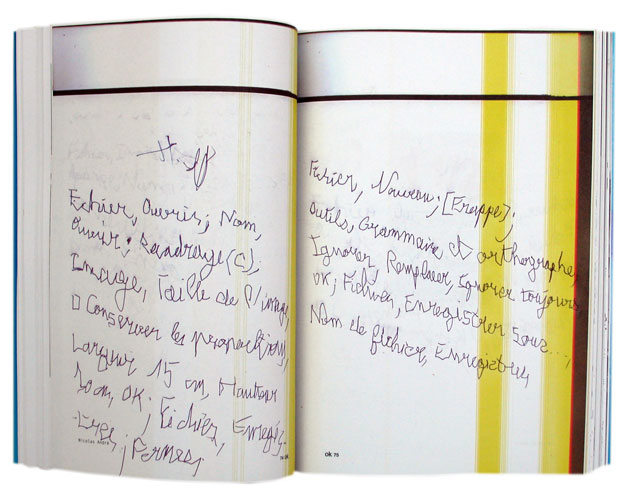 Fichier, Ouvrir; Nom,
Ouvrir; Recadrage(C),
Image, Taille de l'image,
□ Conserver les proportions,
Largeur 15 cm, Hauteur
OK; Fichier, Enregis-
-trer; Fermer;
Nicolas
Fichier, Nouveau; [Frappe];
Outils, Grammaire et orthographe,
Ignorer, Remplacer, Ignorer toujours,
OK; Fichier, Enregistrer sous...,
Nom de fichier, Enregistrer,
ok 75